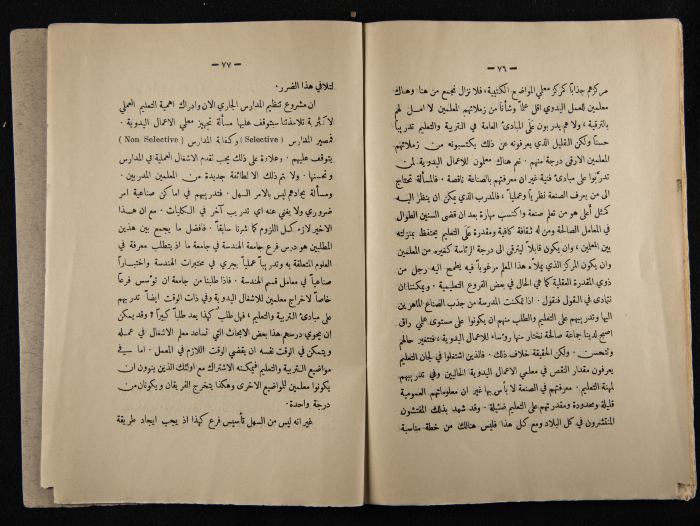 — ٧٦ —
مركزهم جذاباً كمركز معلمي المواضيع الكتابية، فلا نزال نجمع من هنا وهناك
معلمين للعمل اليدوي اقل علماً وشأناً من زملائهم المعلمين لا امل لهم
بالترقية، ولا هم يدربون على المبادئ العامة في التربية والتعليم تدريباً
حسناً ولكن القليل الذي يعرفونه عن ذلك يكتسبونه من زملائهم
المعلمين الارقى درجة منهم. نعم هناك معلمون للاعمال اليدوية لمن
تدربوا على مبادئ فنية غير ان معرفتهم بالصناعة ناقصة. فالمسألة تحتاج
الى من يعرف الصنعة نظرياً وعملياً، فالمدرب الذي يمكن ان ينظر اليه
كمثل أعلى هو من تعلم صنعة واكتسب مهارة بعد ان قضى السنين الطوال
في المعامل الصالحة ومن له ثقافة كافية ومقدرة على التعليم يحتفظ بمنزلته
بين المعلمين، وان يكون قابلاً ليترقى الى درجة الرئاسة كغيره من المعلمين
وان يكون المركز الذي يملأه هذا المعلم مرغوباً فيه يطمح اليه رجل من
ذوي المقدرة العقلية كما هي الحال في بعض الفروع التعليمية. ويمكننا ان
نتمادى في القول فنقول. اذا تمكنت المدرسة من جذب الصناع الماهرين
اليها وتدريبهم على التعليم والطلب منهم ان يكونوا على مستوى علمي راق
اصبح لدينا جماعة صالحة نختار منها رؤساء للاعمال اليدوية، فتتغير حالهم
وتتحسن. ولكن الحقيقة خلاف ذلك. فالذين اشتغلوا في لجان التعليم
يعرفون مقدار النقص في معلمي الاعمال اليدوية الحاليين وفي تدريبهم
لمهنة التعليم. فمعرفتهم في الصنعة لا بأس بها غير ان معلوماتهم العمومية
قليلة ومحدودة ومقدرتهم على التعليم ضئيلة. وقد شهد بذلك المفتشون
المنتشرون في كل البلاد ومع كل هذا فليس هنالك من خطة مناسبة
— ٧٧ —
لتلافي هذا الضرر.
ان مشروع تنظيم المدارس الجاري الان وادراك اهمية التعليم العملي
لاكثرية تلامذتنا سيتوقف عليها مسألة تجهيز معلمي الاعمال اليدوية.
فمصير المدارس (Selective) وكفاية المدارس (Non Selective)
يتوقف عليهم. وعلاوة على ذلك يجب تقدم الاشغال العملية في المدارس
وتحسنها. ولا يتم ذلك الا لطائفة جديدة من المعلمين المدربين.
ومسألة ايجادهم ليس بالامر السهل. فتدريبهم في اماكن صناعية امر
ضروري ولا يغني عنه اي تدريب آخر في الكليات. مع ان هذا
الاخير لازم كل اللزوم كما اشرنا سابقاً. فافضل ما يجمع بين هذين
المطلبين هو درس فرع جامعة الهندسة في جامعة ما اذ يتطلب معرفة في
العلوم المتعلقة به وتدريباً عملياً يجري في مختبرات الهندسة واختباراً
صناعياً في معامل قسم الهندسة. فاذا طلبنا من جامعة ان تؤسس فرعاً
خاصاً لاخراج معلمين للاشغال اليدوية وفي ذات الوقت ايضاً تدربهم
على مبادئ التربية والتعليم، فهل طلب كهذا يعد طلباً كبيراً؟ وقد يمكن
ان يحوي درسهم هذا بعض الابحاث التي تساعد معلم الاشغال في عمله
ويتمكن في الوقت نفسه ان يقضي الوقت اللازم في العمل. اما في
مواضيع التربية والتعليم فيمكنه الاشتراك مع اولئك الذين ينوون ان
يكونوا معلمين للمواضيع الاخرى وهكذا يتخرج الفريقان ويكونان من
درجة واحدة.
غير انه ليس من السهل تأسيس فرع كهذا اذ يجب ايجاد طريقة